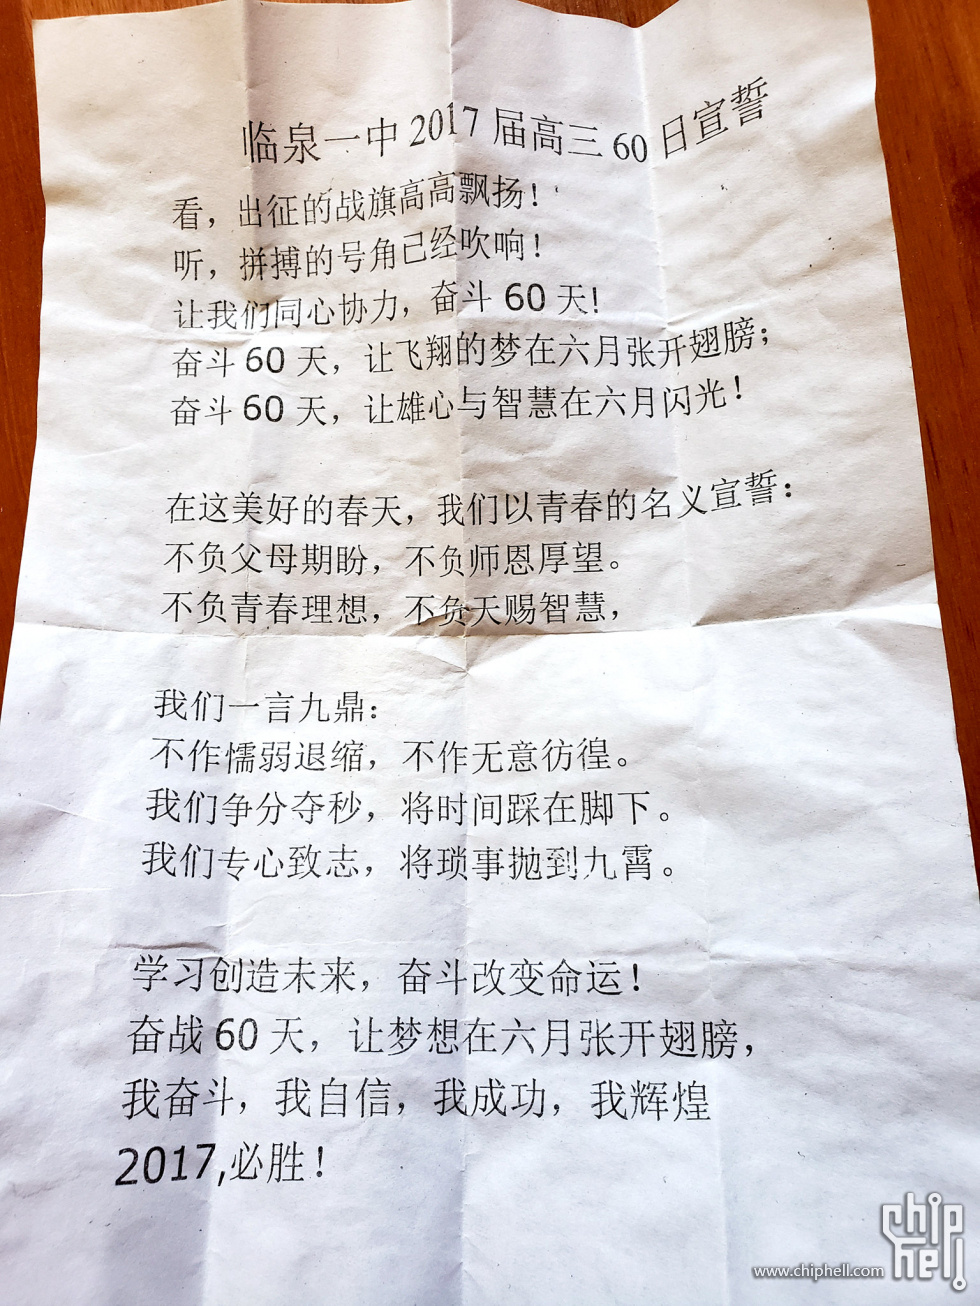 临泉一中 2017 届高三 60 日宣誓
看，出征的战旗高高飘扬！
听，拼搏的号角已经吹响！
让我们同心协力，奋斗 60 天!
奋斗 60 天，让飞翔的梦在六月张开翅膀；
奋斗 60 天，让雄心与智慧在六月闪光！
在这美好的春天，我们以青春的名义宣誓：
不负父母期盼，不负师恩厚望。
不负青春理想，不负天赐智慧，
我们一言九鼎：
不作懦弱退缩，不作无意彷徨。
我们争分夺秒，将时间踩在脚下。
我们专心致志，将琐事抛到九霄。
学习创造未来，奋斗改变命运！
奋战 60 天，让梦想在六月张开翅膀，
我奋斗，我自信，我成功，我辉煌
2017,必胜！
chip
hell
www.chiphell.com